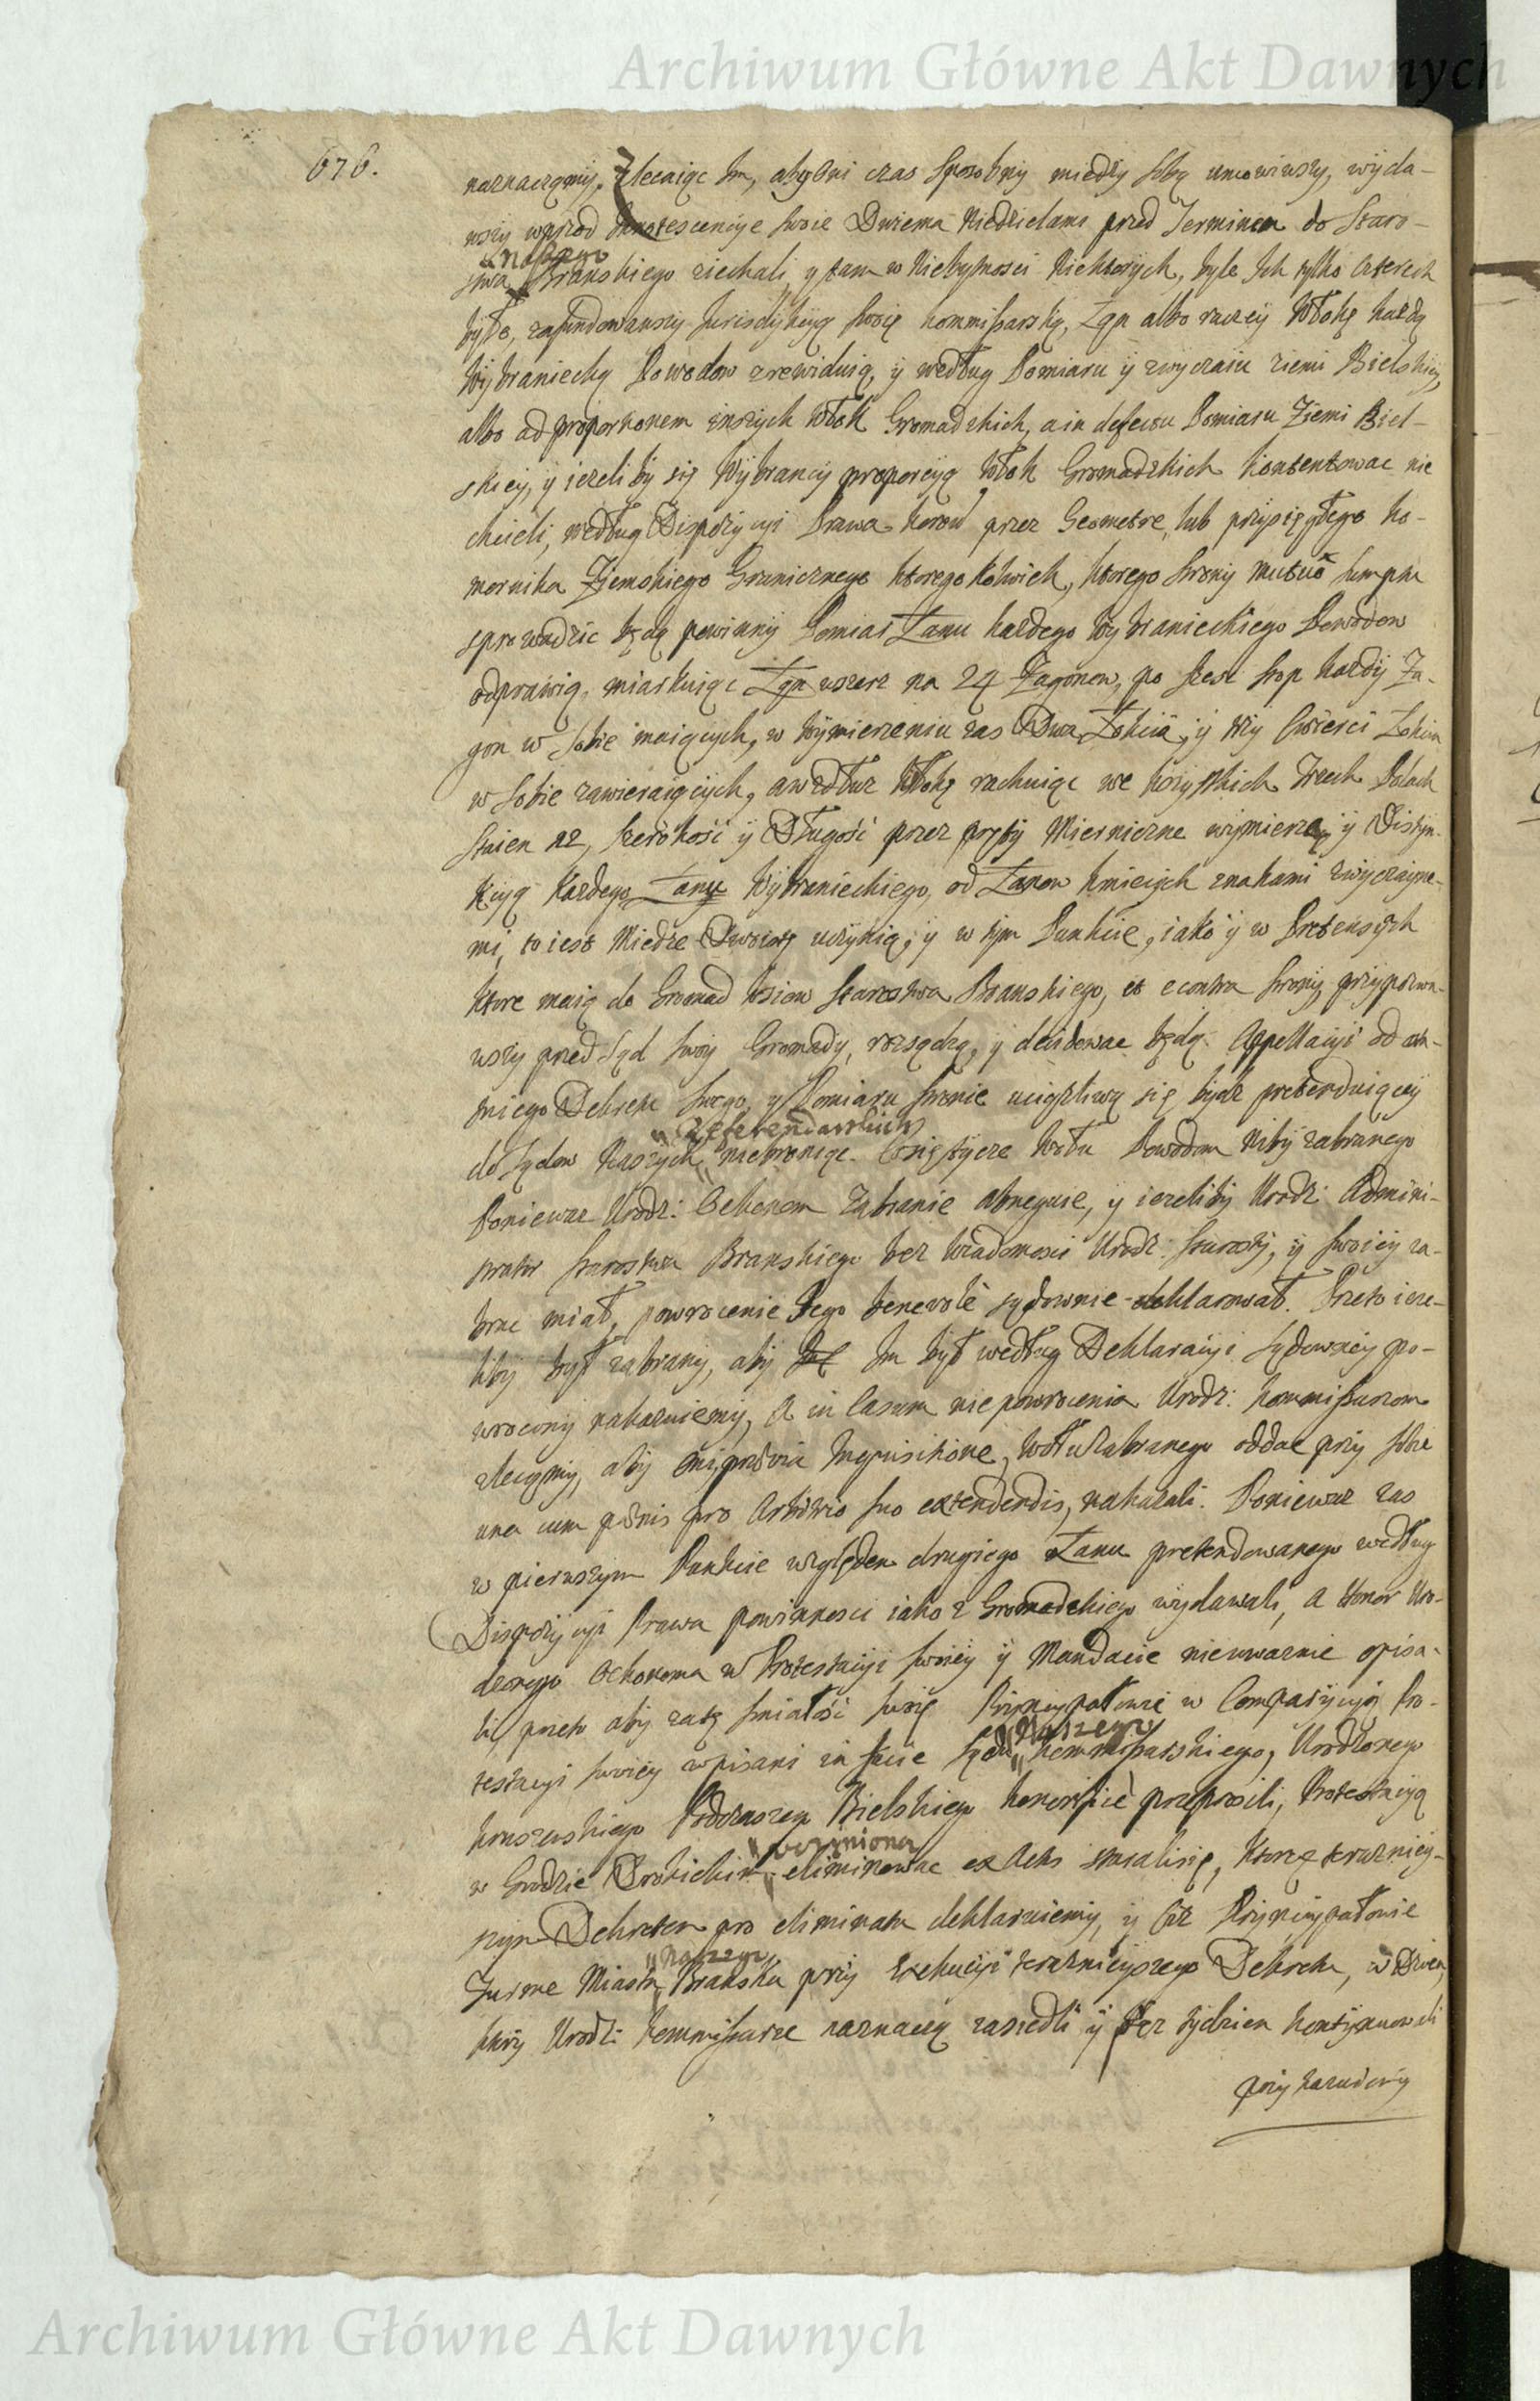 Archiwum Główne Akt Dawnych
676.
naznaczamy. Zlecaiąc Im, aby Oni czas sposobny między sobą umowiwszy, wyda-
wszy wprzod Innotescencye swoie Dwiema Niedzielami przed Terminem do Staro-
naszego
stwa Branskiego ziechali, y tam w Niebytnosci Niektorych, byle Ich tylko czterech
było, zafundowawszy Jurisdykcyą swoię kommissarską, Łan albo raczey Włokę każdą
Wybraniecką Powodow zrewiduią, y według Pomiaru y zwyczaiu ziemi Bielskiey,
albo ad proportionem inszych Włok Gromadzkich, a in defectu Pomiaru Ziemi Biel-
skiey, y ieżeliby się Wybrancy proporcyą Włok Gromadzkich kontentowac nie
chcieli, według Dispozycyi Prawa Koron przez Geometrę, lub przysięgłego Ko-
mornika Ziemskiego Granicznego ktoregokolwiek, ktorego strony mutuo sumptu
sprowadzic będą powinny Pomiar Łanu każdego Wybranieckiego Powodow
odprawią, miarkuiąc Łan wszerz na 24 Zagonow, po szesc stop każdy Za-
gon w sobie maiących, w wymierzeniu zas Dwa Łokcia, y trzy Cwierci Łokcia
w sobie zawieraiących, a wzdłuz Włokę rachuiąc we wszystkich Trzech Polach
Staien 12, szerokość y Długość przez pręty Miernicze wymierzą, y Distyn-
kcyą Każdego Łanu Wybranieckiego, od Łanow kmiecych znakami zwyczayne-
mi, to iest Miedze Dworzą uczynią, y w tym Punkcie, iako y w Pretensyach
ktore maią do Gromad wsiow Starostwa Branskiego, et econtra strony przypozwa-
wszy przed Sąd swoy Gromady, rozsądzą, y decidowac będą. Appellacyi od
tniego Dekretu swego, y Pomiaru stronie uciążliwą się bydz pretenduiącey
Referendarskich
do Sądow Naszych niebroniąc. Co się tycze Wołu Powodom niby zabranego
Poniewaz Urodz: Oekonom zabranie abneguie, y ieżeliby Urodz: Admini-
strator Starostwa Branskiego bez wiadomosci Urodz: Starosty, y swoiey za-
brac miał, powrocenie tego benevolè sądownie deklarował. Przeto ieże-
liby był zabrany, aby Im był według Deklaracyi Sądowney po-
wrocony nakazuiemy, A in Casum niepowrocenia Urodz: Kommissarzom
zlecamy, aby oni, prævia Inquisitione, wołu zabranego oddac przy sobie
una cum pœnis pro Arbitrio suo extendendis, nakazali. Poniewaz zas
w pierwszym Punkcie względem drugiego Łanu pretendowanego według
Dispozycyi Prawa powinnosci iako z Gromadzkiego wydawali, a Honor Uro-
dzonego Oekonoma w Protestacyi swoiey y Mandacie nieuwaznie opisa-
li, przeto aby zatę smiałość swoię Pryncypałowie w Comparycyą Pro-
Naszego
testacyi swoiey wpisani in facie Sądu Kommissarskiego, Urodzonego
Kruszewskiego Podczaszego Bielskiego honorificè przeprosili, Protestacyą
uczyniona
w Grodzie Drohickim eliminowac ex Actis starali się, Ktorą terazniey-
szym Dekretem pro eliminata deklaruiemy, y Ciz Pryncypałowie
naszego
Turme Miasta Branska przy Exekucyi teraznieyszego Dekretu, w Dzien,
ktory Urodz: Kommissarze naznaczą zasiedli y bez tydzien kontynuowali
przykazuiemy
Archiwum Główne Akt Dawnych